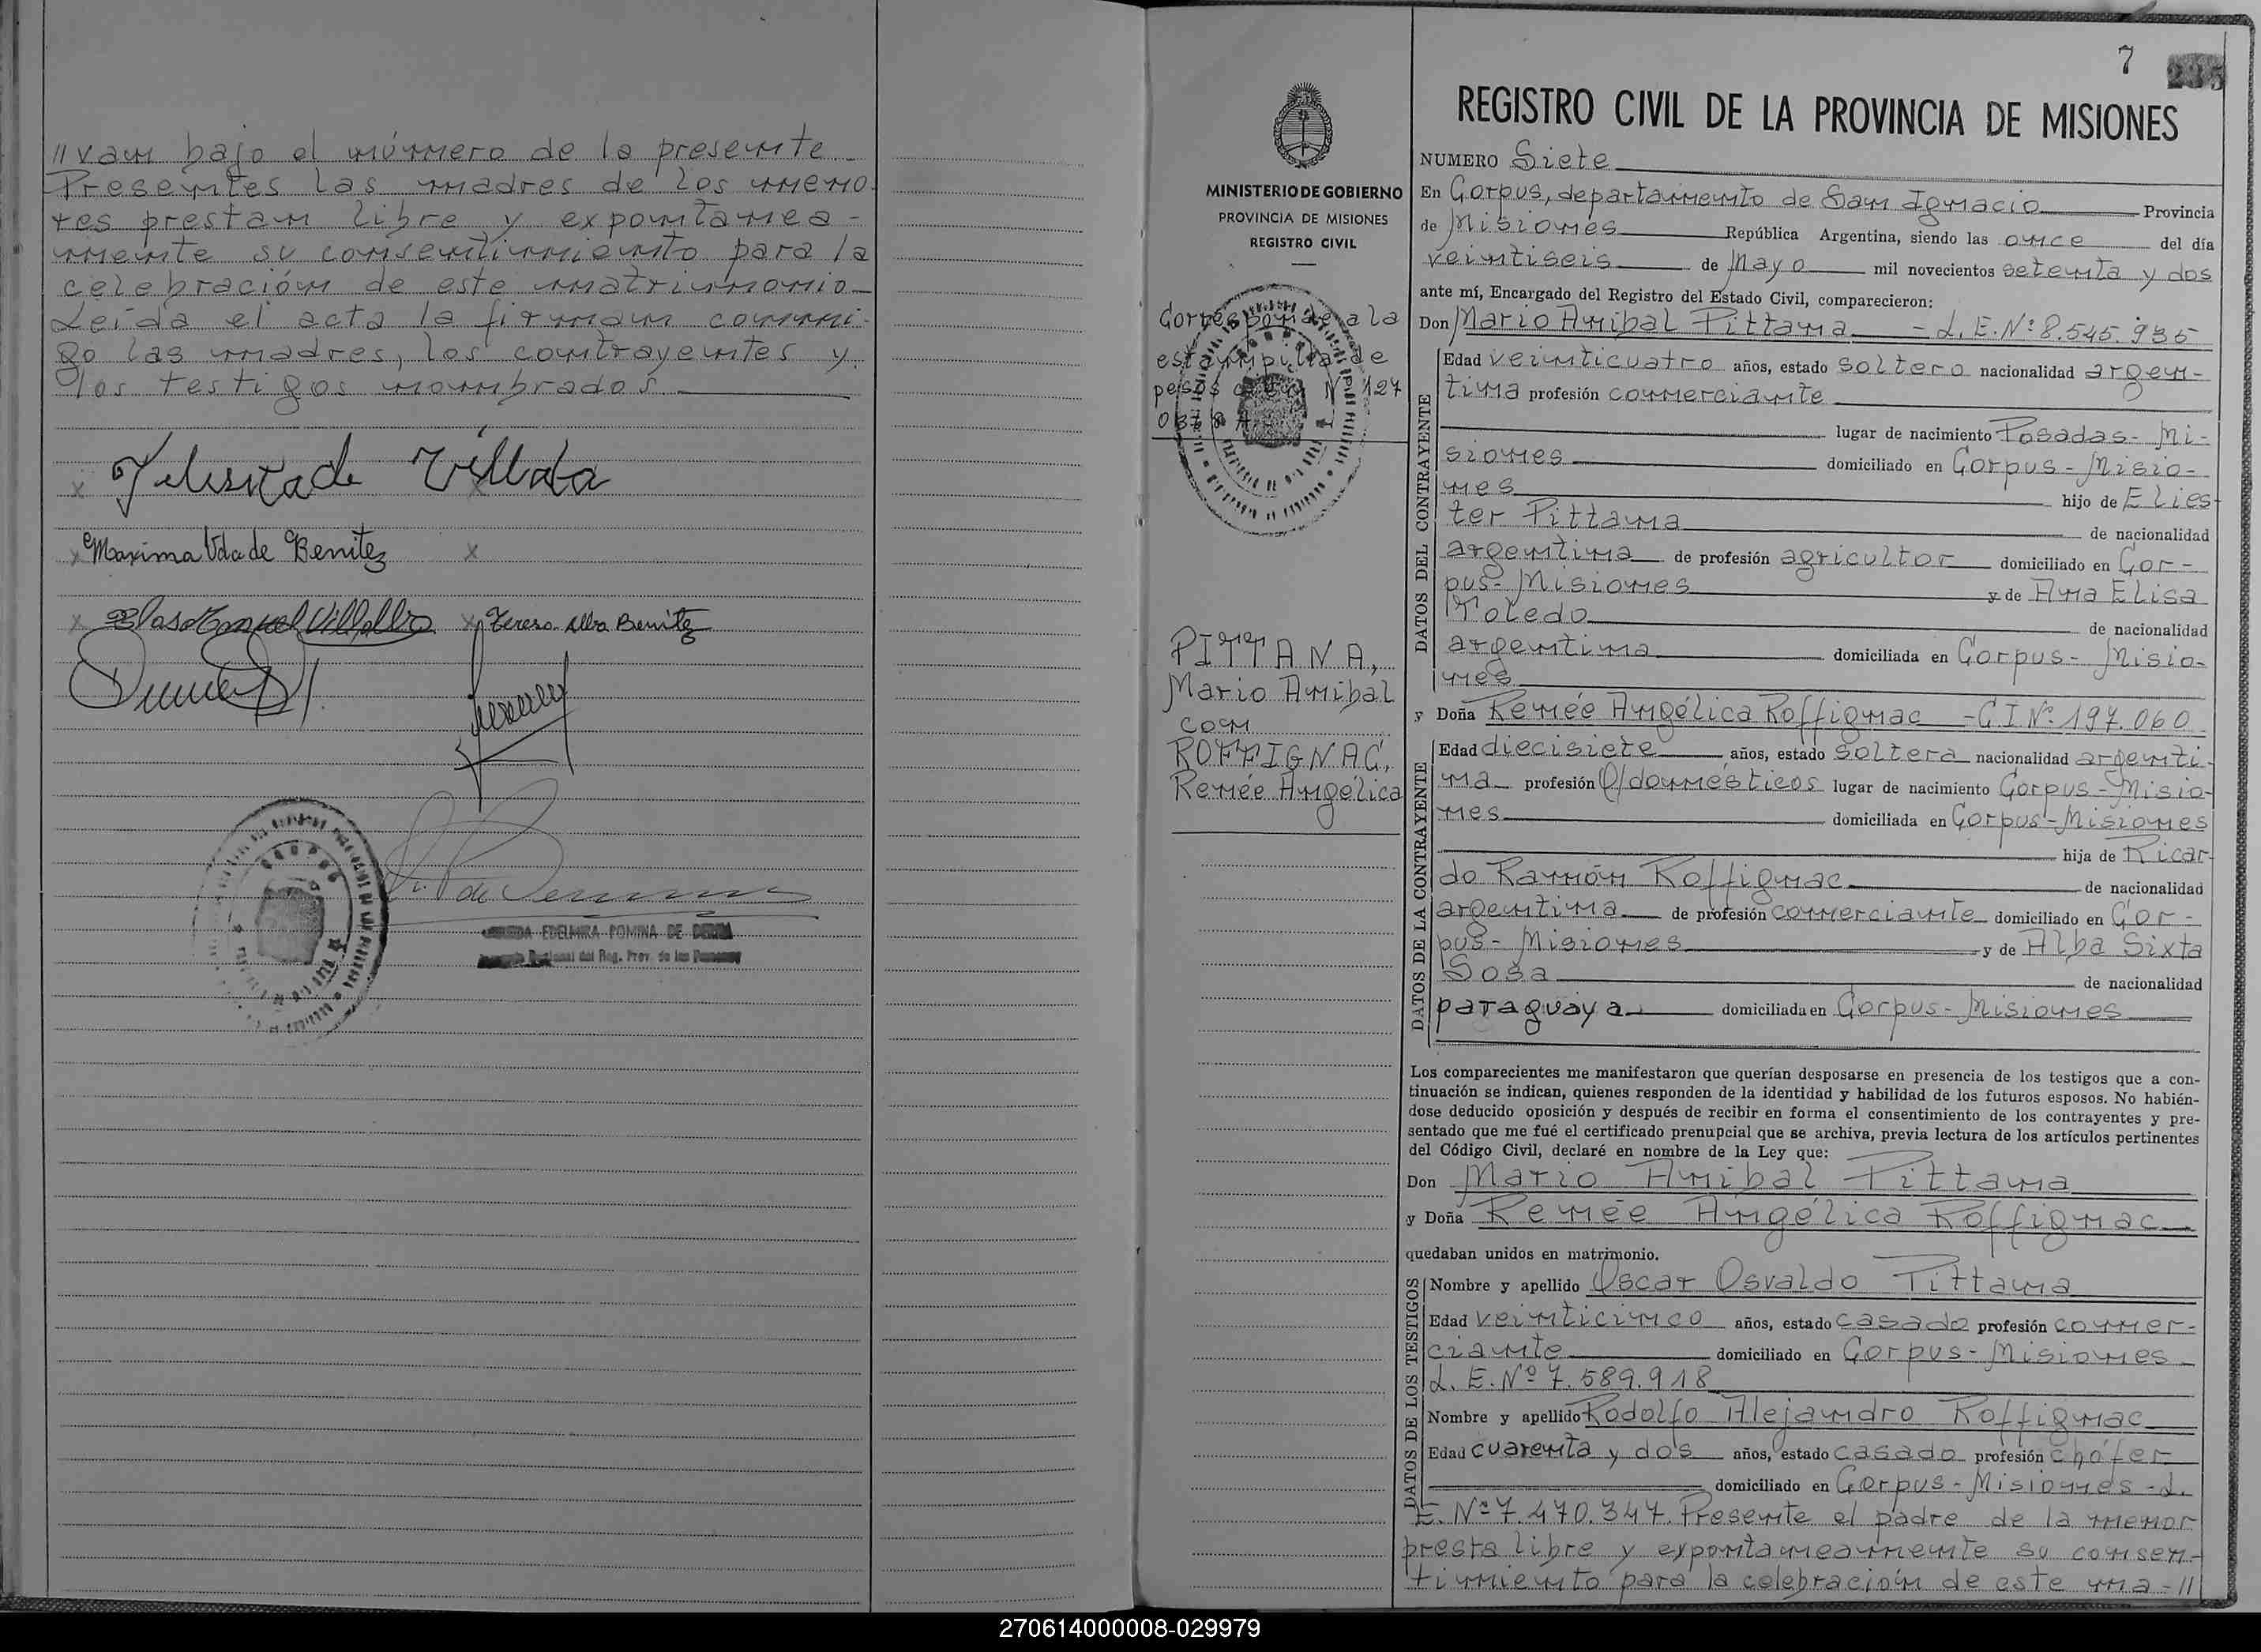 //van bajo el número de la presente
Presentes las madres de los meno-
res prestan libre y expontanea-
mente su consentimiento para la
celebración de este matrimonio
Leída el acta la firman conmi-
go las madres, los contrayentes y
los testigos nombrados.
Villalba
Maxima Vda de Benitez
Blas Villalba Teresa Alba Benitez
EDELMIRA POMINA DE
del Reg. Prov. de las Personas
7
235
MINISTERIO DE GOBIERNO
PROVINCIA DE MISIONES
REGISTRO CIVIL
Corresponde a la
estampilla de
pesos Nº 127
PITTANA,
Mario Anibal
con
ROFFIGNAC,
Renée Angélica
REGISTRO CIVIL DE LA PROVINCIA DE MISIONES
NUMERO Siete
En Corpus, departamento de San Ignacio Provincia
de Misiones República Argentina, siendo las once del día
veintiseis de Mayo mil novecientos setenta y dos
ante mí, Encargado del Registro del Estado Civil, comparecieron:
Don Mario Anibal Pittana - L.E.Nº 8.545.935
DATOS DEL CONTRAYENTE
Edad veinticuatro años, estado soltero nacionalidad argen-
tina profesión comerciante
lugar de nacimiento Posadas - Mi-
siones domiciliado en Corpus - Misio-
nes hijo de Elies
ter Pittana de nacionalidad
argentina de profesión agricultor domiciliado en Cor-
pus - Misiones y de Ana Elisa
Toledo de nacionalidad
argentina domiciliada en Corpus - Misio-
nes
y Doña Renée Angélica Roffignac - C I Nº 197.060
DATOS DE LA CONTRAYENTE
Edad diecisiete años, estado soltera nacionalidad argenti-
na profesión Q/domésticos lugar de nacimiento Corpus - Misio-
nes domiciliada en Corpus - Misiones
hija de Ricar-
do Ramón Roffignac de nacionalidad
argentina de profesión comerciante domiciliado en Cor-
pus - Misiones y de Alba Sixta
Sosa de nacionalidad
paraguaya domiciliada en Corpus - Misiones
Los comparecientes me manifestaron que querían desposarse en presencia de los testigos que a con-
tinuación se indican, quienes responden de la identidad y habilidad de los futuros esposos. No habién-
dose deducido oposición y después de recibir en forma el consentimiento de los contrayentes y pre-
sentado que me fué el certificado prenupcial que se archiva, previa lectura de los artículos pertinentes
del Código Civil, declaré en nombre de la Ley que:
Don Mario Anibal Pittana
y Doña Renée Angélica Roffignac
quedaban unidos en matrimonio.
DATOS DE LOS TESTIGOS
Nombre y apellido Oscar Osvaldo Pittana
Edad veinticinco años, estado casado profesión comer-
ciante domiciliado en Corpus - Misiones
L. E. Nº 7.589.918
Nombre y apellido Rodolfo Alejandro Roffignac
Edad cuarenta y dos años, estado casado profesión chófer
domiciliado en Corpus - Misiones - L.
E. Nº 7.470.347. Presente el padre de la menor
presta libre y expontaneamente su consen-
timiento para la celebración de este ma-//
270614000008-029979